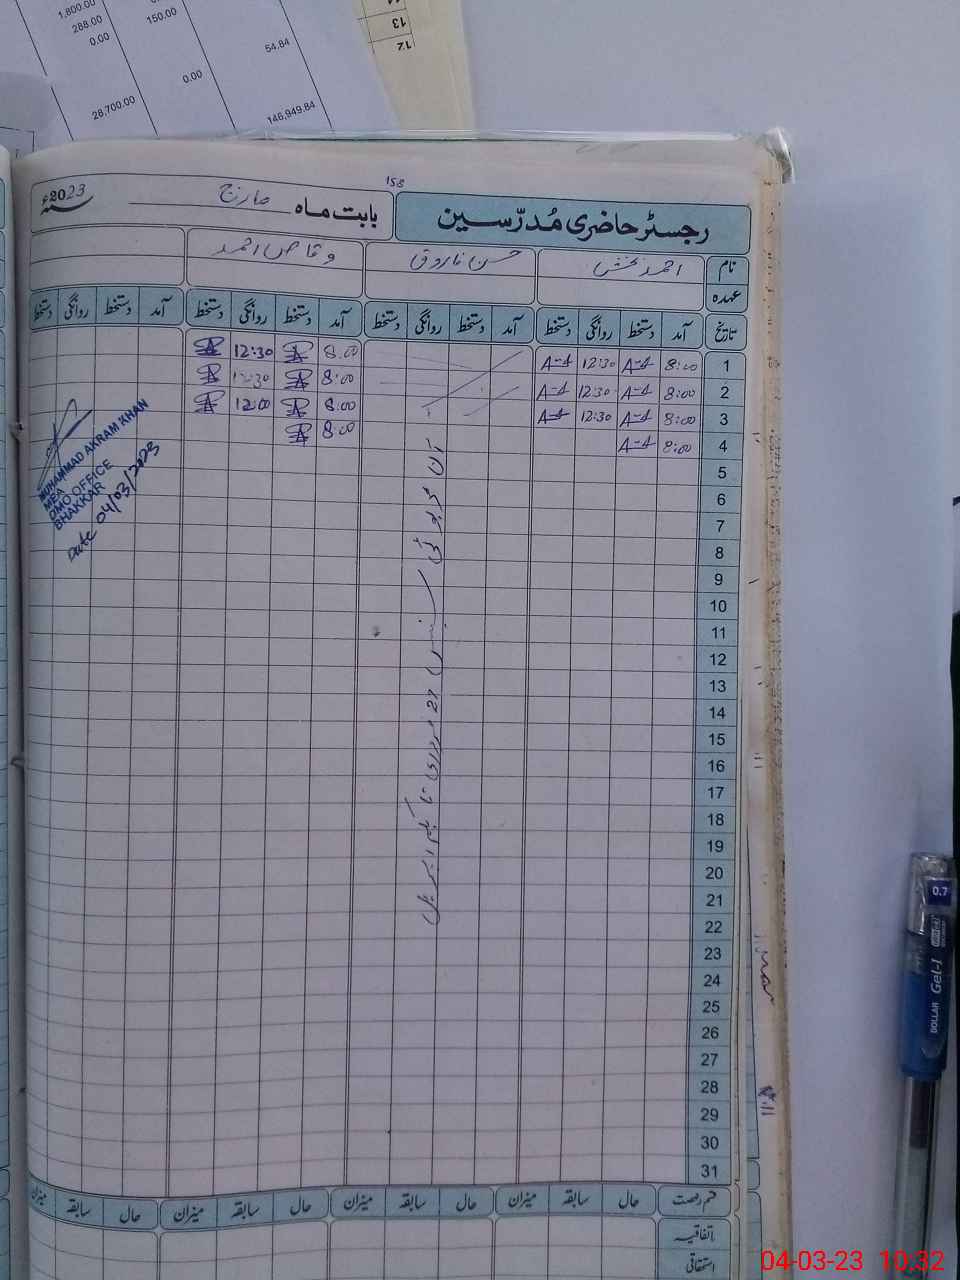 1,800.00
288.00
0.00
150.00
0.00
54.84
28,700.00
146,949.84
13
12
158
رجسٹر حاضری مُدرّسین
بابت ماہ مارچ 2023ء
نام احمد بخش حسن فاروق وقاص احمد
عہدہ
تاریخ آمد دستخط روانگی دستخط آمد دستخط روانگی دستخط آمد دستخط روانگی دستخط آمد دستخط روانگی دستخط
1 8:00 A-A 12:30 A-A 8:00 12:30
2 8:00 A-A 12:30 A-A 8:00 12:30
3 8:00 A-A 12:30 A-A 8:00 12:00
4 8:00 A-A 8:00
5
6
7
8
9
10
11
12
13
14
15
16
17
18
19
20
21
22
23
24
25
26
27
28
29
30
31
آن ڈیوٹی 27 فروری تا یکم اپریل
MUHAMMAD AKRAM KHAN
MEA
DMO OFFICE
BHAKKAR
Date 04/03/2023
قسم رخصت حال سابقہ میزان حال سابقہ میزان حال سابقہ میزان حال سابقہ میزان
اتفاقیہ
استحقاقی
0.7
DOLLAR Gel-I
04-03-23 10:32